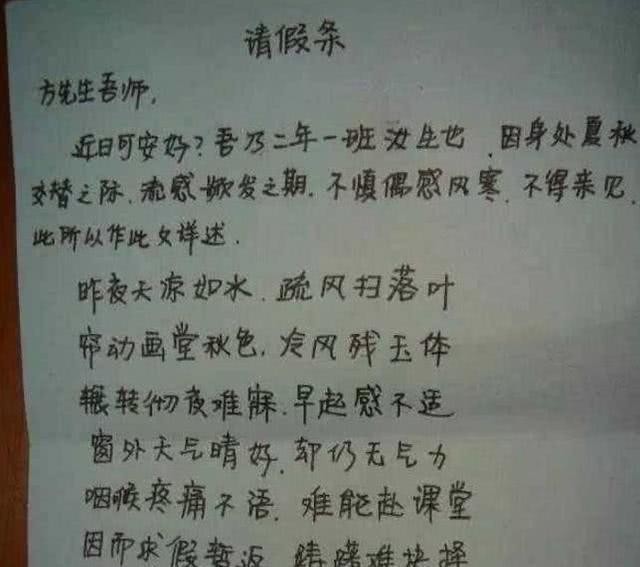 请假条
方先生吾师,
近日可安好?吾乃二年一班汝生也,因身处夏秋
交替之际,流感频发之期,不慎偶感风寒,不得亲见,
此所以作此文详述.
昨夜天凉如水,疏风扫落叶
帘动画堂秋色,冷风残玉体
辗转彻夜难寐,早起感不适
窗外天气晴好,却仍无气力
咽喉疼痛不语,难能赴课堂
因而求假暂返,踌躇难抉择